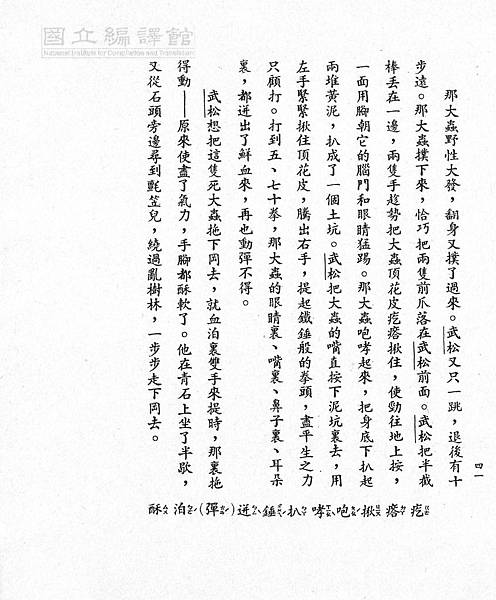 國立編譯館
National Institute for Compilation and Translation
那大蟲野性大發，翻身又撲了過來。武松又只一跳，退後有十
步遠。那大蟲撲下來，恰巧把兩隻前爪落在武松前面。武松把半截
棒丟在一邊，兩隻手趁勢把大蟲頂花皮疙瘩揪住，使勁往地上按，
一面用腳朝它的腦門和眼睛猛踢。那大蟲咆哮起來，把身底下扒起
兩堆黃泥，扒成了一個土坑。武松把大蟲的嘴直按下泥坑裏去，用
左手緊緊揪住頂花皮，騰出右手，提起鐵錘般的拳頭，盡平生之力
只顧打。打到五、七十拳，那大蟲的眼睛裏、嘴裏、鼻子裏、耳朵
裏，都迸出了鮮血來，再也動彈不得。
武松想把這隻死大蟲拖下岡去，就血泊裏雙手來提時，那裏拖
得動——原來使盡了氣力，手腳都酥軟了。他在青石上坐了半歇，
又從石頭旁邊尋到氈笠兒，繞過亂樹林，一步步走下岡去。
四一
疙瘩揪咆哮扒錘迸(彈)泊酥